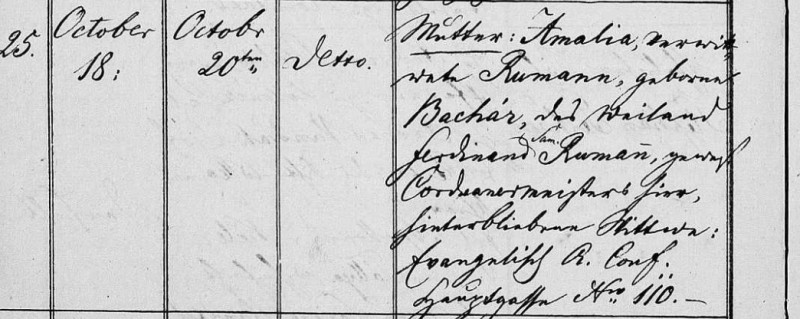 25.
October
18:
Octobr
20ten
Detto.
Mutter: Amalia, verwit-
wete Rumann, geborne
Bachár, des weiland
Ferdinand Sam. Rumañ, gewes.
Corduanermeisters hier,
hinterbliebene Wittwe:
Evangelisch A. Conf.
Hauptgasse Nro 110.—